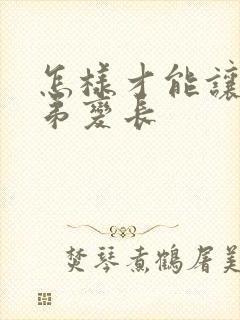 怎樣才能讓
弟變長
焚琴煮鶴屠美